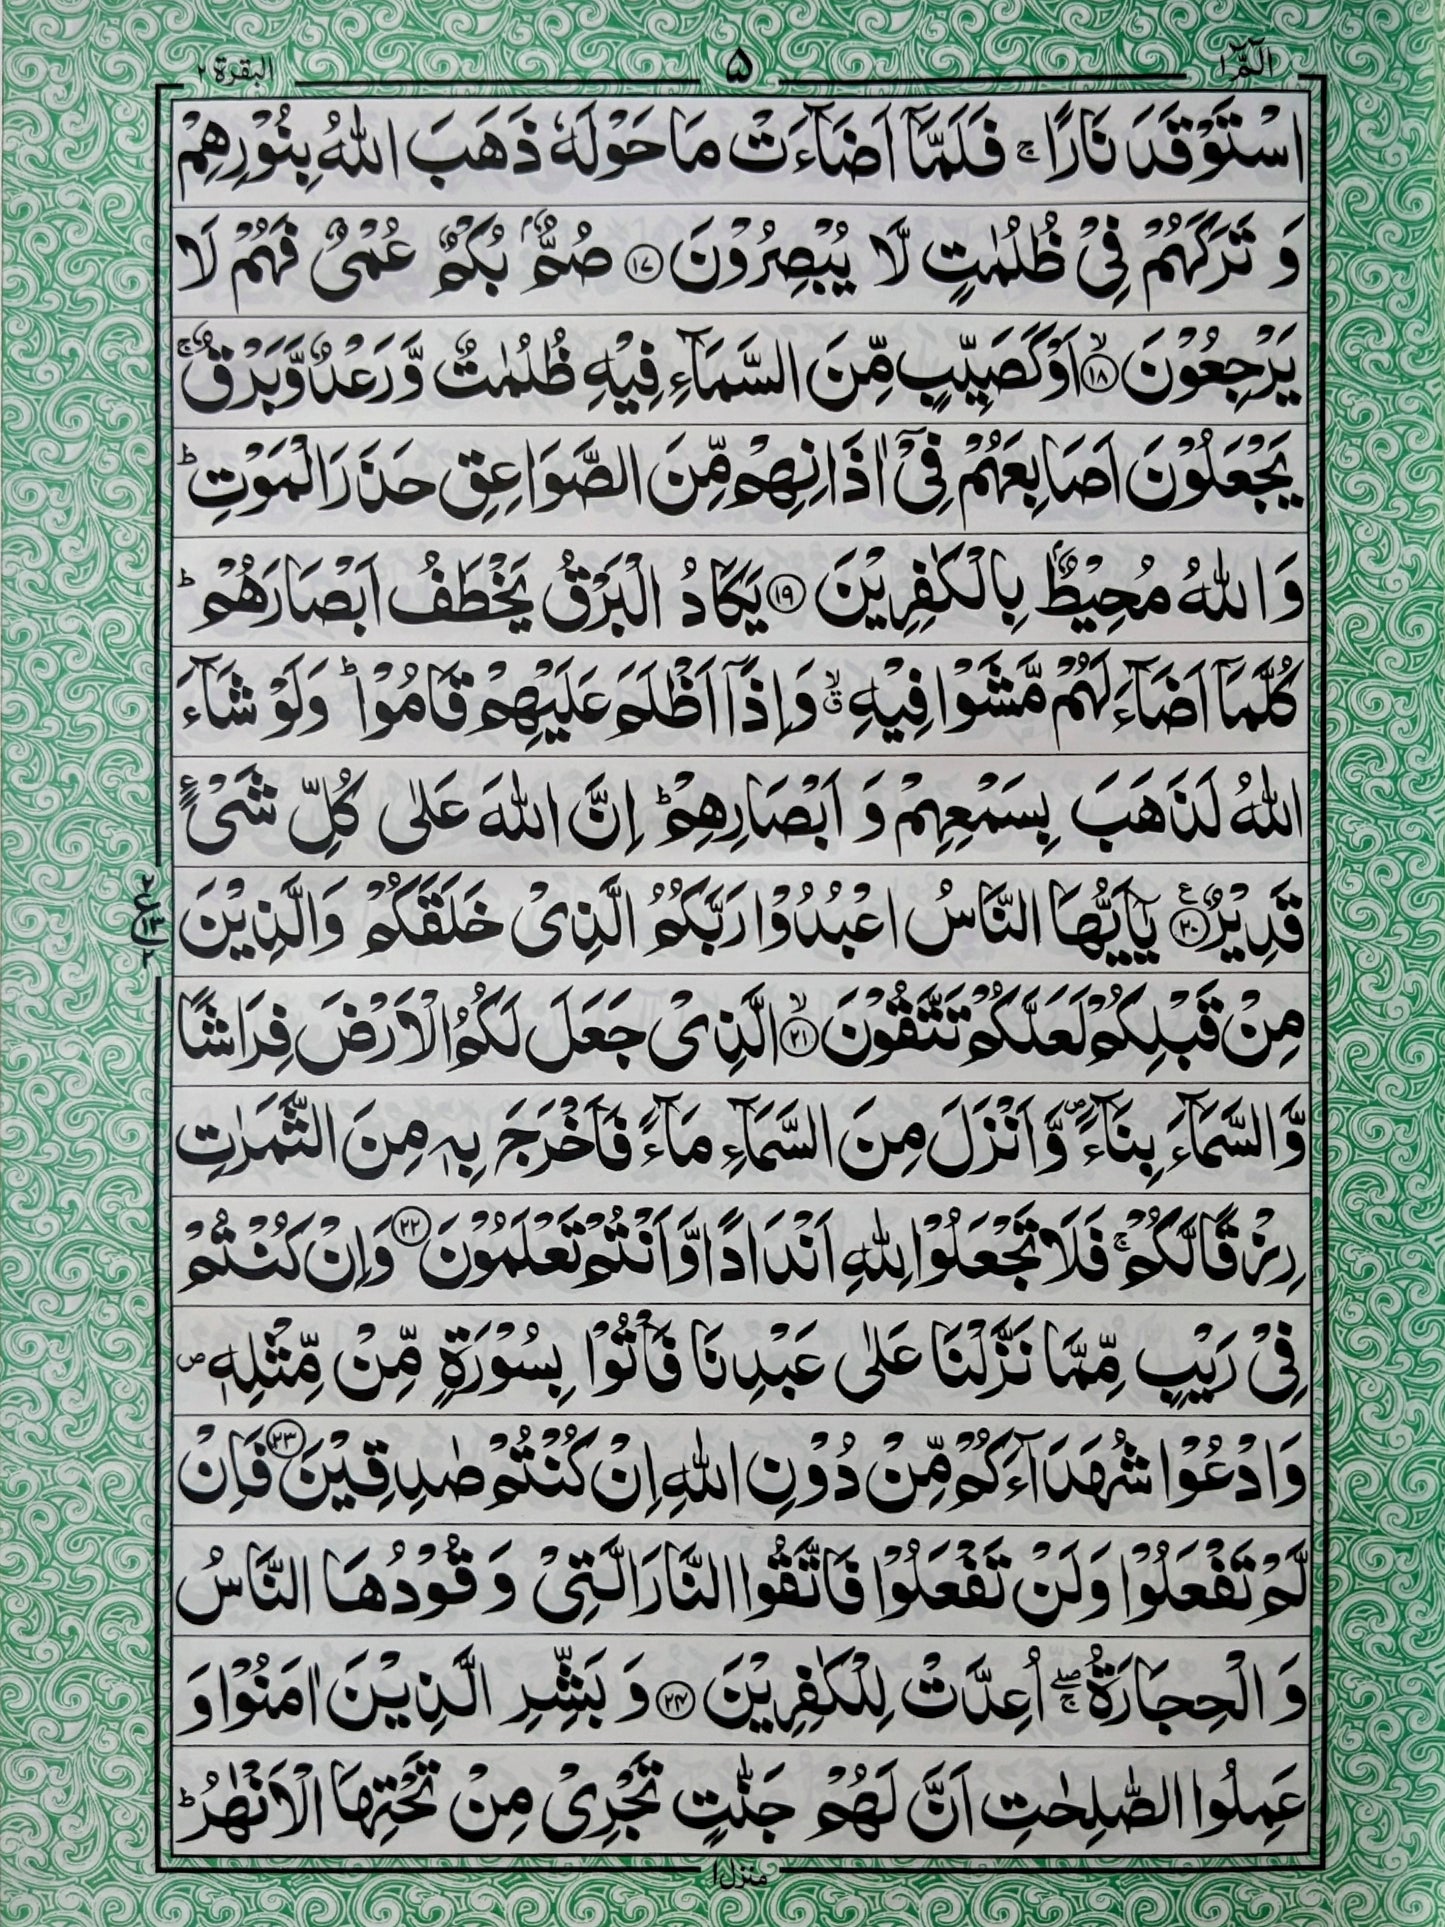 الٓمّٓ ۱
۵
البقرة ۲
اسْتَوْقَدَ نَارًا ۚ فَلَمَّاۤ اَضَآءَتْ مَا حَوْلَهٗ ذَهَبَ اللّٰهُ بِنُوْرِهِمْ
وَ تَرَكَهُمْ فِیْ ظُلُمٰتٍ لَّا یُبْصِرُوْنَ ﴿۱۷﴾ صُمٌّۢ بُكْمٌ عُمْیٌ فَهُمْ لَا
یَرْجِعُوْنَ ﴿۱۸﴾ۙ اَوْ كَصَیِّبٍ مِّنَ السَّمَآءِ فِیْهِ ظُلُمٰتٌ وَّ رَعْدٌ وَّ بَرْقٌ ۚ
یَجْعَلُوْنَ اَصَابِعَهُمْ فِیْۤ اٰذَانِهِمْ مِّنَ الصَّوَاعِقِ حَذَرَ الْمَوْتِ ؕ
وَ اللّٰهُ مُحِیْطٌۢ بِالْكٰفِرِیْنَ ﴿۱۹﴾ یَكَادُ الْبَرْقُ یَخْطَفُ اَبْصَارَهُمْ ؕ
كُلَّمَاۤ اَضَآءَ لَهُمْ مَّشَوْا فِیْهِ ۙۗ وَ اِذَاۤ اَظْلَمَ عَلَیْهِمْ قَامُوْا ؕ وَ لَوْ شَآءَ
اللّٰهُ لَذَهَبَ بِسَمْعِهِمْ وَ اَبْصَارِهِمْ ؕ اِنَّ اللّٰهَ عَلٰی كُلِّ شَیْءٍ
قَدِیْرٌ ﴿۲۰﴾ یٰۤاَیُّهَا النَّاسُ اعْبُدُوْا رَبَّكُمُ الَّذِیْ خَلَقَكُمْ وَ الَّذِیْنَ
مِنْ قَبْلِكُمْ لَعَلَّكُمْ تَتَّقُوْنَ ﴿۲۱﴾ۙ الَّذِیْ جَعَلَ لَكُمُ الْاَرْضَ فِرَاشًا
وَّ السَّمَآءَ بِنَآءً ۪ وَّ اَنْزَلَ مِنَ السَّمَآءِ مَآءً فَاَخْرَجَ بِهٖ مِنَ الثَّمَرٰتِ
رِزْقًا لَّكُمْ ۚ فَلَا تَجْعَلُوْا لِلّٰهِ اَنْدَادًا وَّ اَنْتُمْ تَعْلَمُوْنَ ﴿۲۲﴾ وَ اِنْ كُنْتُمْ
فِیْ رَیْبٍ مِّمَّا نَزَّلْنَا عَلٰی عَبْدِنَا فَاْتُوْا بِسُوْرَةٍ مِّنْ مِّثْلِهٖ ۪
وَ ادْعُوْا شُهَدَآءَكُمْ مِّنْ دُوْنِ اللّٰهِ اِنْ كُنْتُمْ صٰدِقِیْنَ ﴿۲۳﴾ فَاِنْ
لَّمْ تَفْعَلُوْا وَ لَنْ تَفْعَلُوْا فَاتَّقُوا النَّارَ الَّتِیْ وَ قُوْدُهَا النَّاسُ
وَ الْحِجَارَةُ ۖۚ اُعِدَّتْ لِلْكٰفِرِیْنَ ﴿۲۴﴾ وَ بَشِّرِ الَّذِیْنَ اٰمَنُوْا وَ
عَمِلُوا الصّٰلِحٰتِ اَنَّ لَهُمْ جَنّٰتٍ تَجْرِیْ مِنْ تَحْتِهَا الْاَنْهٰرُ ؕ
منزل ۱